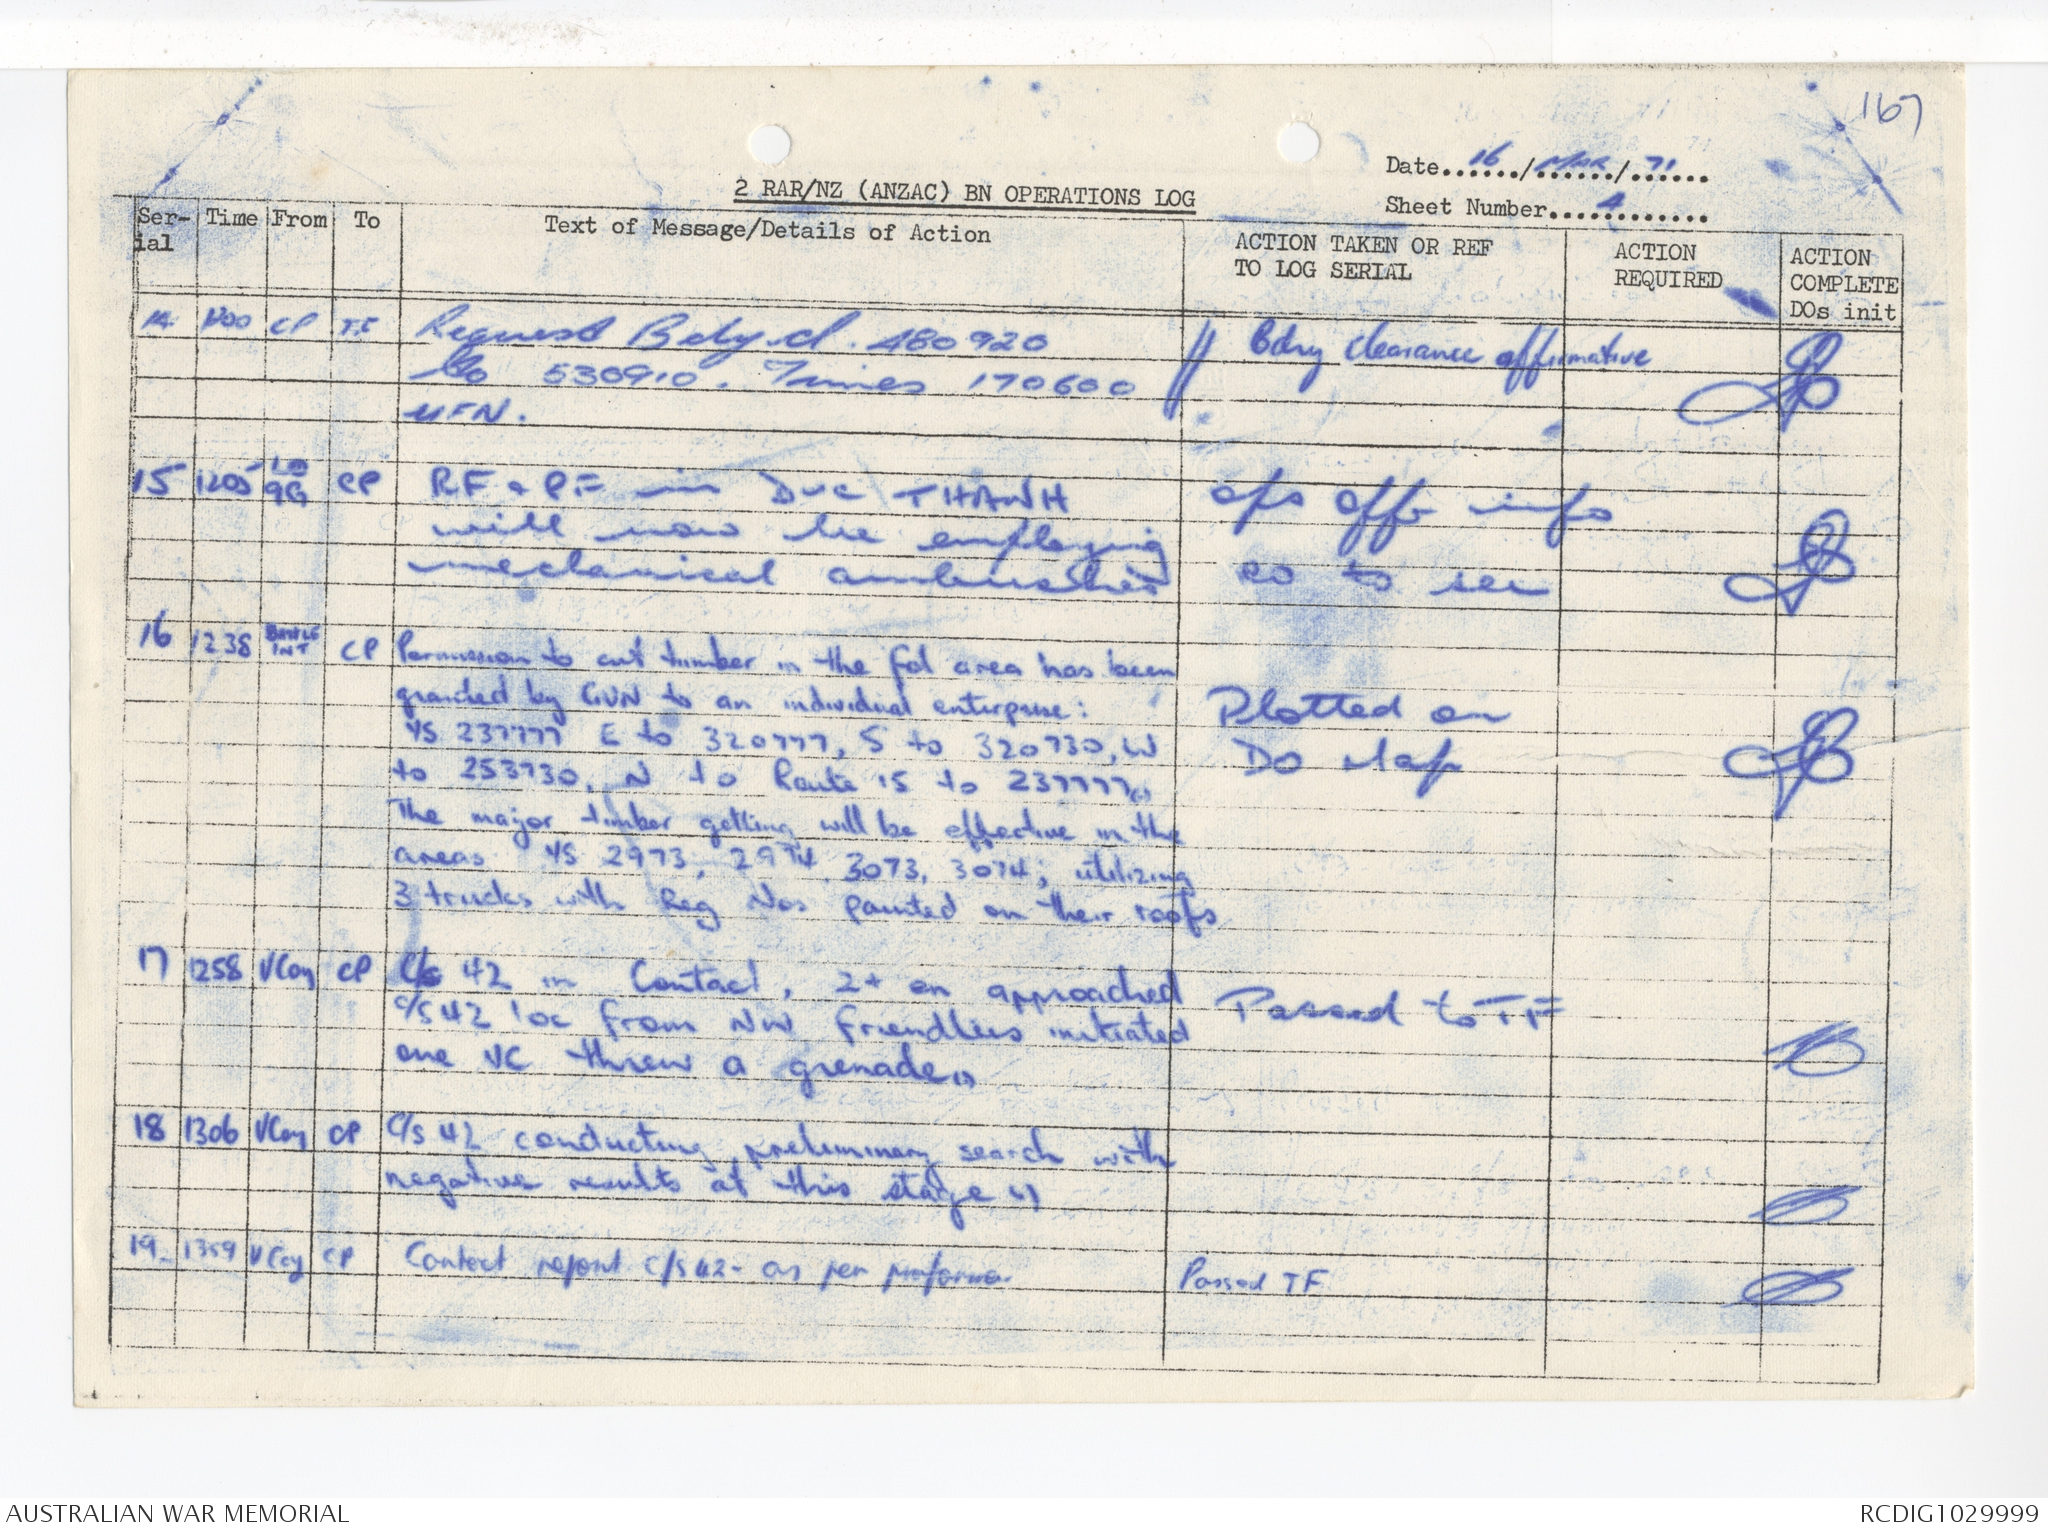 167
Date 16/MAR/71
Sheet Number 4
2 RAR/NZ (ANZAC) BN OPERATIONS LOG
Ser-ial Time From To Text of Message/Details of Action ACTION TAKEN OR REF TO LOG SERIAL ACTION REQUIRED ACTION COMPLETE DOs init
14 1200 CP TF Request Bdy cl. 480920 // Bdry clearance affirmative
to 530910. Times 170600
UFN.
15 1205 LO 9G CP RF & PF in DUC THANH ops offr info
will now be employing
mechanical ambushes co to see
16 1238 BATTLE INT CP Permission to cut timber in the fol area has been
granted by GVN to an individual enterprise: Plotted on
YS 237777 E to 320777, S to 320730, W DO Map
to 253730, N to Route 15 to 237777(.)
The major timber getting will be effective in the
areas YS 2973, 2974, 3073, 3074; utilizing
3 trucks with Reg Nos painted on their roofs
17 1258 VCoy CP C/S 42 in Contact, 2+ en approached Passed to TF
C/S 42 loc from NW, friendlies initiated
one VC threw a grenade(.)
18 1306 VCoy CP C/S 42 conducting preliminary search with
negative results at this stage (.)
19 1359 VCoy CP Contact report C/S 42- as per proforma. Passed TF
AUSTRALIAN WAR MEMORIAL RCDIG1029999